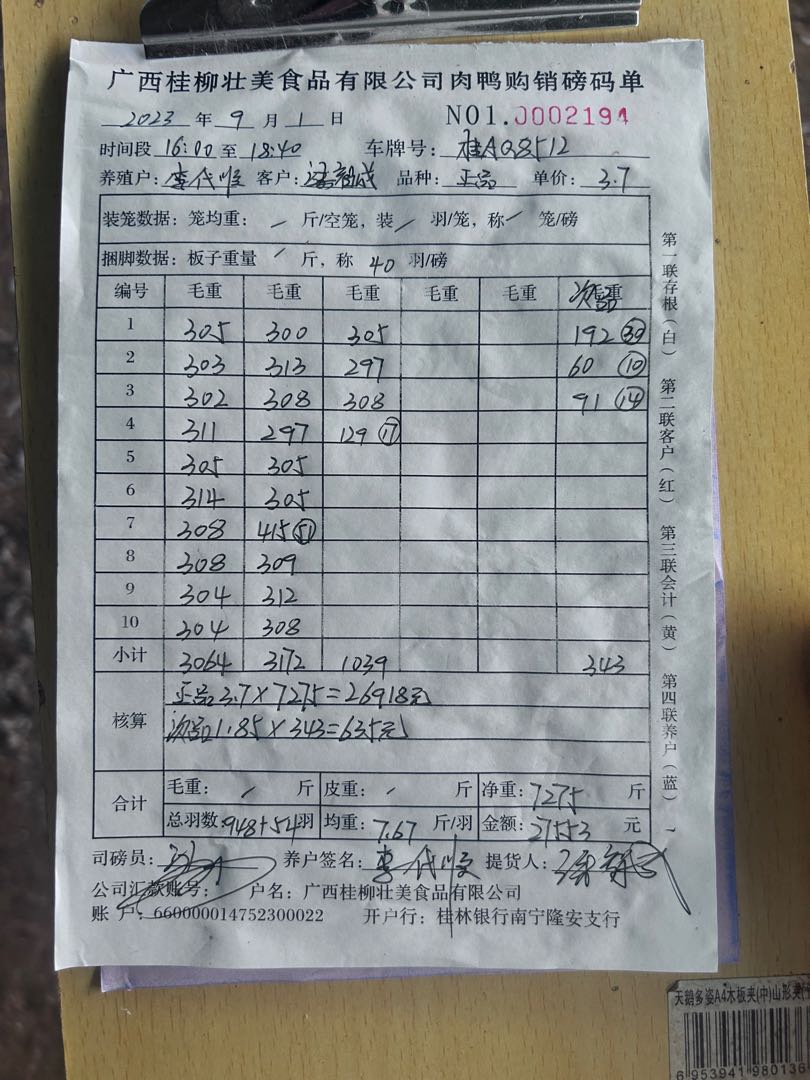 广西桂柳壮美食品有限公司肉鸭购销磅码单
2023 年 9 月 1 日 NO1.0002194
时间段 16:00 至 18:40 车牌号: 桂AQ8512
养殖户: 李代顺 客户: 品种: 正品 单价: 3.7
装笼数据: 笼均重: / 斤/空笼, 装 / 羽/笼, 称 / 笼/磅
捆脚数据: 板子重量 / 斤, 称 40 羽/磅
编号 毛重 毛重 毛重 毛重 毛重 次品
1 305 300 305 192 ㉚
2 303 313 297 60 ⑩
3 302 308 308 91 ⑭
4 311 297 129 ⑰
5 305 305
6 314 305
7 308 415 (51)
8 308 309
9 304 312
10 304 308
小计 3064 3172 1039 343
核算
正品3.7×7275=26918元
次品1.85×343=635元
合计
毛重: / 斤 皮重: / 斤 净重: 7275 斤
总羽数: 948+54 羽 均重: 7.67 斤/羽 金额: 27553 元
司磅员: 养户签名: 李代顺 提货人:
公司汇款账号: 户名: 广西桂柳壮美食品有限公司
账 户: 660000014752300022 开户行: 桂林银行南宁隆安支行
第一联存根(白) 第二联客户(红) 第三联会计(黄) 第四联养户(蓝)
天鹅多姿A4木板夹(中)山形夹
6 953941 980136